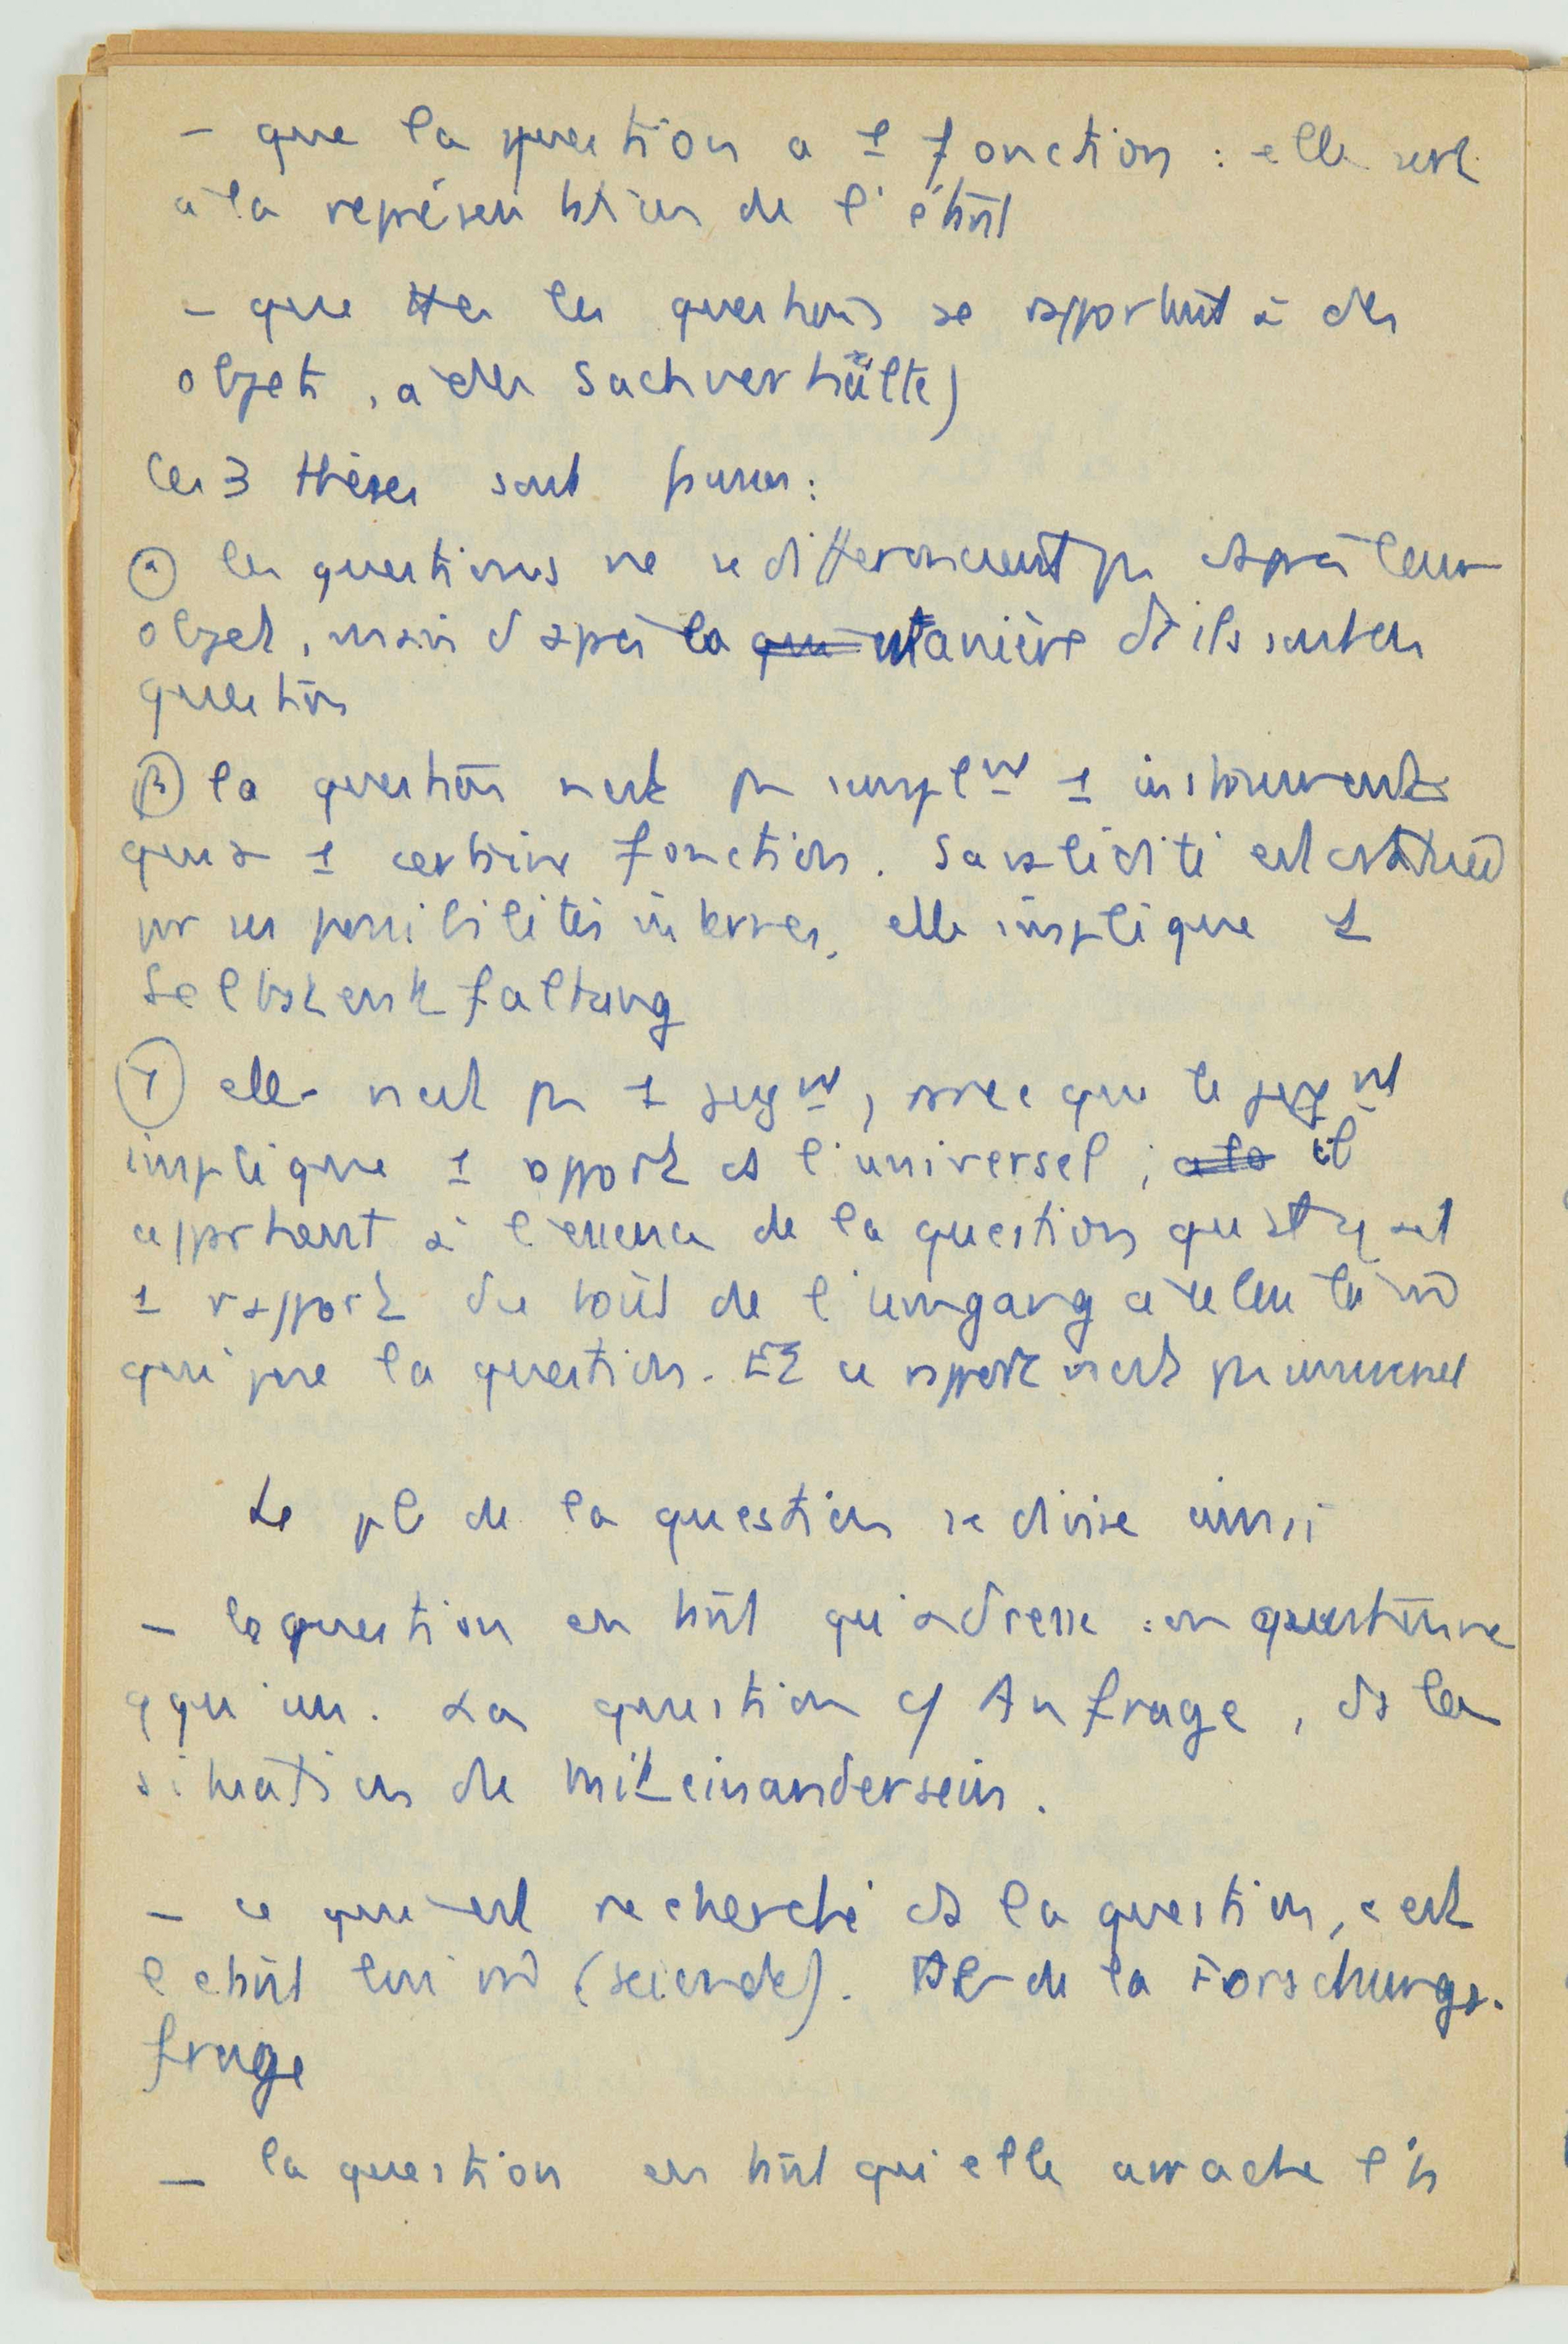 – que la question a 1 fonction : elle sert
à la représentation de l'étant
– que ttes les questions se rapportent à des
objets, à des Sachverhälte)
Ces 3 thèses sont fausses :
(α) les questions ne se differencient pas d'après leur
objet, mais d'après la manière dt ils sont en
question
(β) la question n'est pas simplnt 1 instrument
qui a 1 certaine fonction. Sa validité est
par ses possibilités internes, elle implique 1
Selbstentfaltung
(γ) elle n'est pas 1 jugnt, parce que le jugnt
implique 1 rapport à l'universel ; il
appartient à l'essence de la question qu'il y ait
1 rapport du tout de l'umgang à celui là m̂
qui pose la question. Et ce rapport n'est pas
Le pb de la question se divise ainsi
– la question en tant qu'adresse : on questionne
qqu'un. La question cf Anfrage, ds la
situation de miteinandersein.
– ce qui est recherché ds la question, c'est
l'étant lui m̂ (seiende). Pb de la Forschungs-
frage
– la question en tant qu'elle arrache l'h